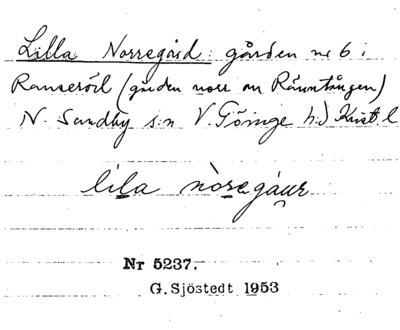 Lilla Norregård: gården nr 6 i
Ranseröd (gården norr om Rävatången)
N. Sandby s:n V. Göinge h:d Krist l
lila nòregáur
Nr 5237.
G.Sjöstedt 1953